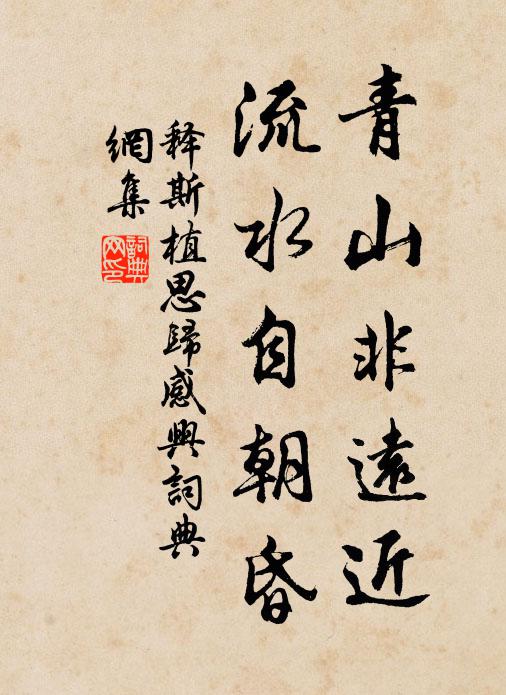 青山非遠近
流水自朝昏
释斯植思歸感興詞典
網集
詞典
网印